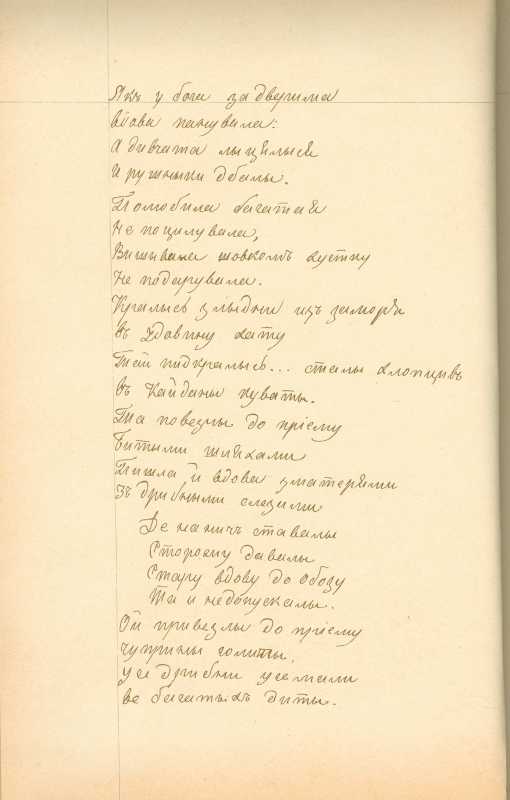 Якъ у бога за дверима
вдова панувала:
А дивчата лыцялыся
И рушныки дбалы.
Полюбила багатая
Не поцилувала,
Вишывала шовкомъ хустну
Не подарувала.
Кралысь злыдни изъ заморя
въ вдовину хату
Тай пидкралысь... сталы хлопцивъ
въ Кайданы куваты.
Та повезлы до пріему
Битыми шляхами
Пишла й вдова зматерями
Зъ дрибными слезими
Де на ничъ ставалы
Стороену давалы
Стару вдову до Обозу
Та и недопускалы.
Ой привезлы до пріему
чуприны голиты.
усе дрибни усе мали
все багатыхъ диты.